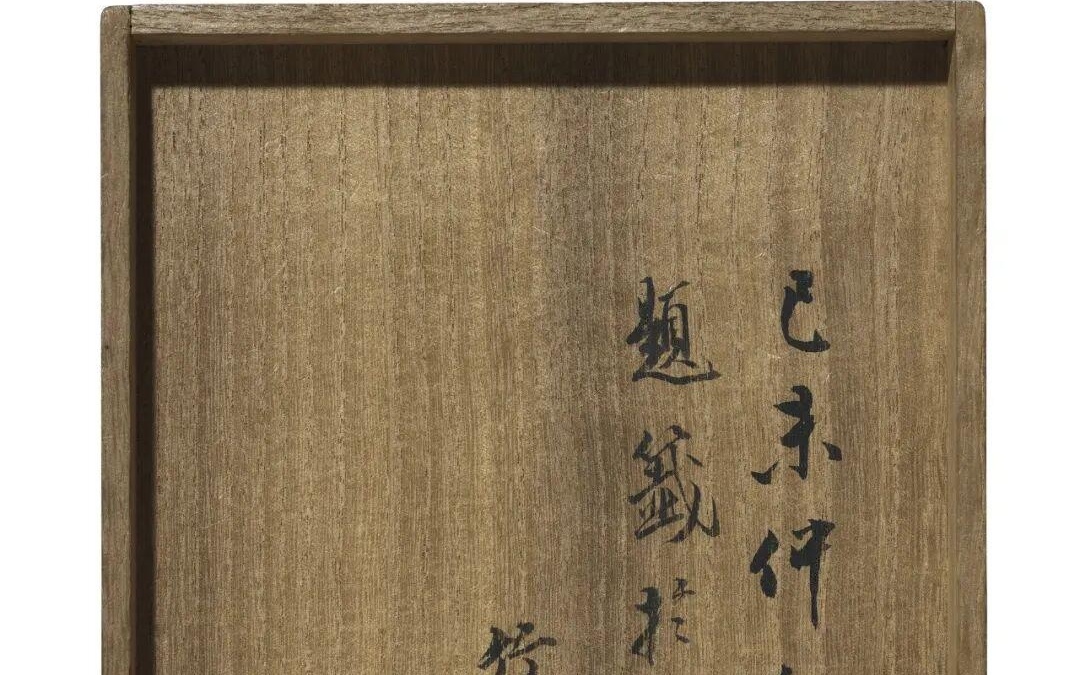 己未仲
題籤於